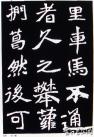 里車馬不通
者久之攀蘿
捫葛然後可